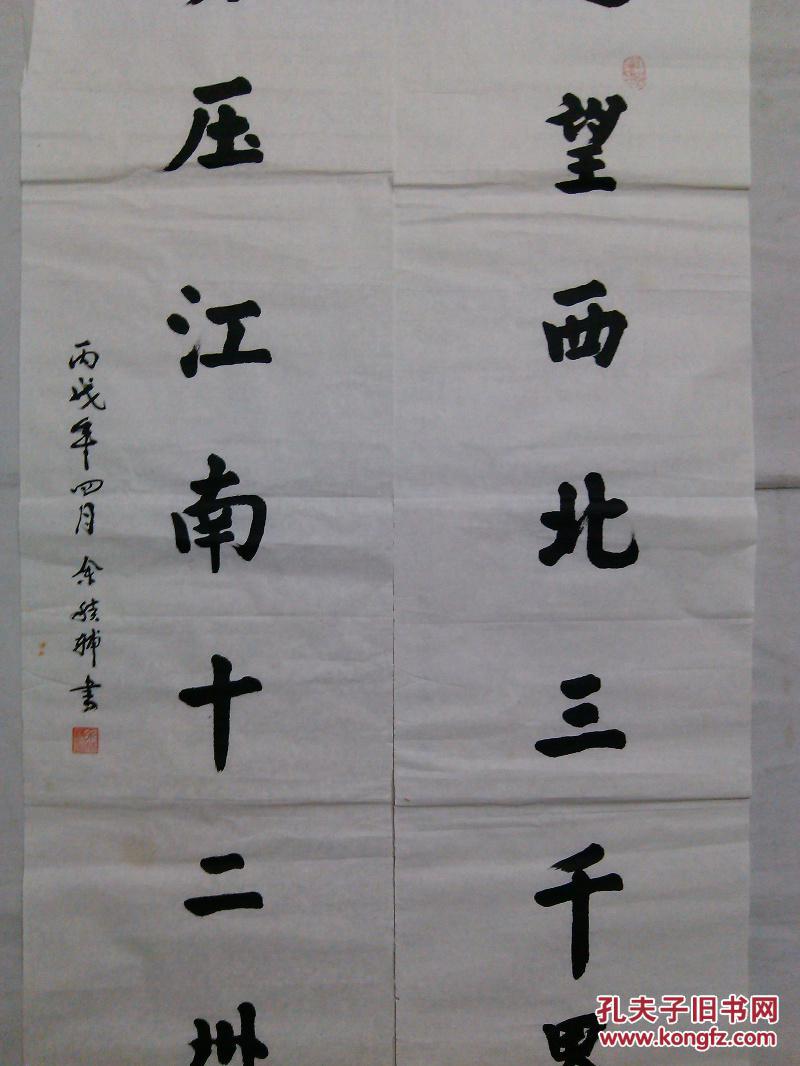 望西北三千里
压江南十二州
丙戌年四月余继辅书
孔夫子旧书网
www.kongfz.com